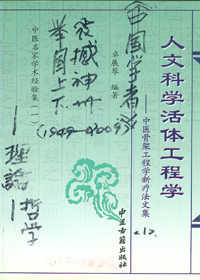 人文科学活体工程学
——中医骨架工程学新疗法文集
卓晨琴 编著
中医名家学术经验集(一)
中国学者
震撼神州
举国上下
(1949-2009)
—理論—哲学
中医古籍出版社